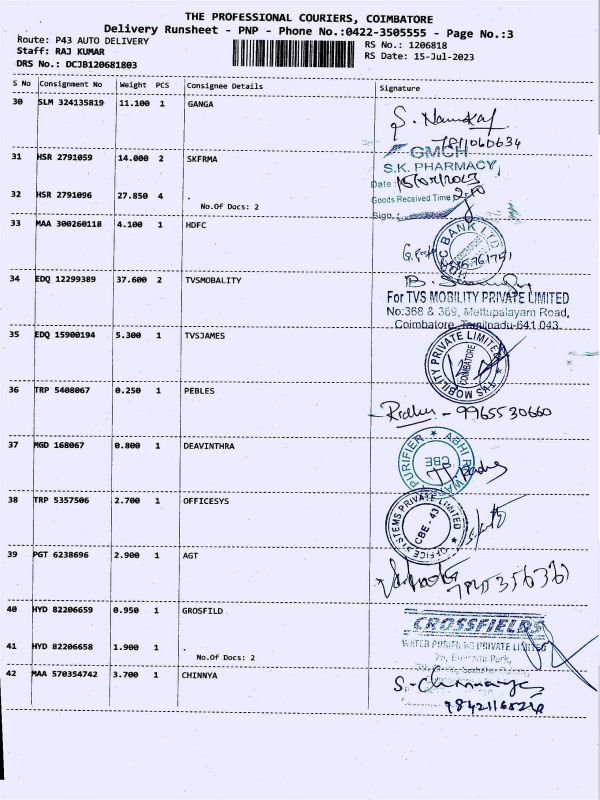 THE PROFESSIONAL COURIERS, COIMBATORE
Delivery Runsheet - PNP - Phone No.:0422-3505555 - Page No.:3
Route: P43 AUTO DELIVERY
RS No.: 1206818
Staff: RAJ KUMAR
RS Date: 15-Jul-2023
DRS No.: DCJB120681803
S No Consignment No Weight PCS Consignee Details Signature
30 SLM 324135819 11.100 1 GANGA
7811060634
31 HSR 2791059 14.000 2 SKFRMA
GMCH
S.K. PHARMACY
Date : 15/07/2023
32 HSR 2791096 27.850 4 .
Goods Received Time 2.10
No.Of Docs: 2
Sign.
33 MAA 300260118 4.100 1 HDFC
BANK LTD
34 EDQ 12299389 37.600 2 TVSMOBALITY
For TVS MOBILITY PRIVATE LIMITED
No:368 & 369, Mettupalayam Road,
Coimbatore, Tamilnadu-641 043.
35 EDQ 15900194 5.300 1 TVSJAMES
TVS MOBILITY PRIVATE LIMITED
COIMBATORE
36 TRP 5408067 0.250 1 PEBLES
- 9965530660
37 MGD 168067 0.800 1 DEAVINTHRA
PURIFIER ★ ABHI
CBE
38 TRP 5357506 2.700 1 OFFICESYS
OFFICE SYSTEMS PRIVATE LIMITED
CBE - 43
39 PGT 6238696 2.900 1 AGT
40 HYD 82206659 0.950 1 GROSFILD
CROSSFIELDS
41 HYD 82206658 1.900 1 .
WATER PURIFIERS PRIVATE LIMITED
No.Of Docs: 2
42 MAA 570354742 3.700 1 CHINNYA